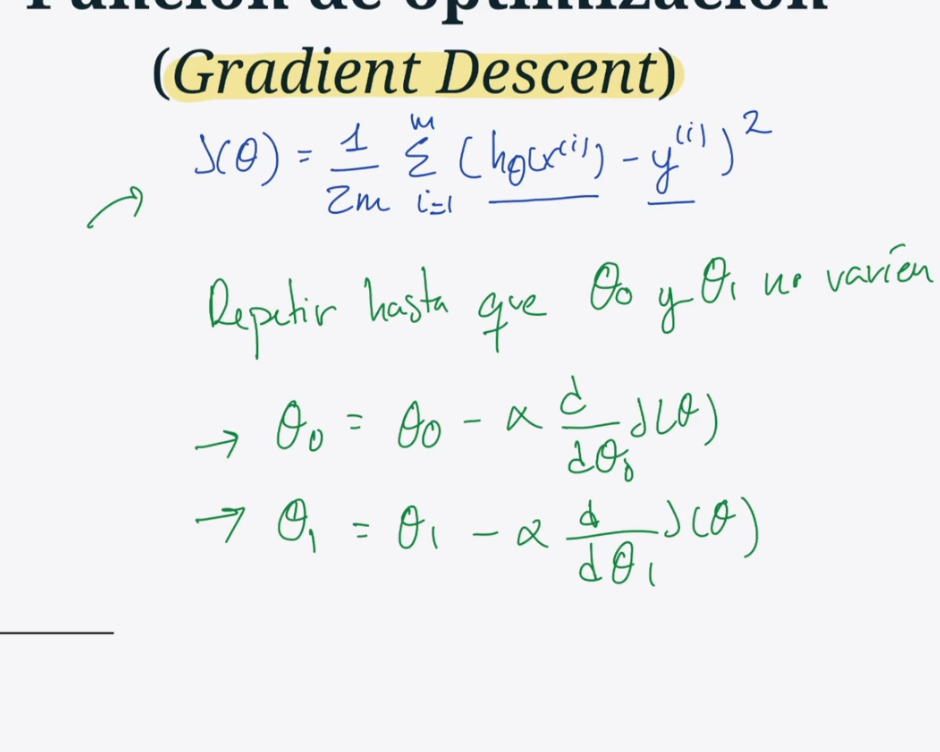 Función de optimización
(Gradient Descent)
J(θ) = 1/2m Σ_{i=1}^{m} (hθ(x^{(i)}) - y^{(i)})^2
Repetir hasta que θ₀ y θ₁ no varíen
→ θ₀ = θ₀ - α d/dθ₀ J(θ)
→ θ₁ = θ₁ - α d/dθ₁ J(θ)